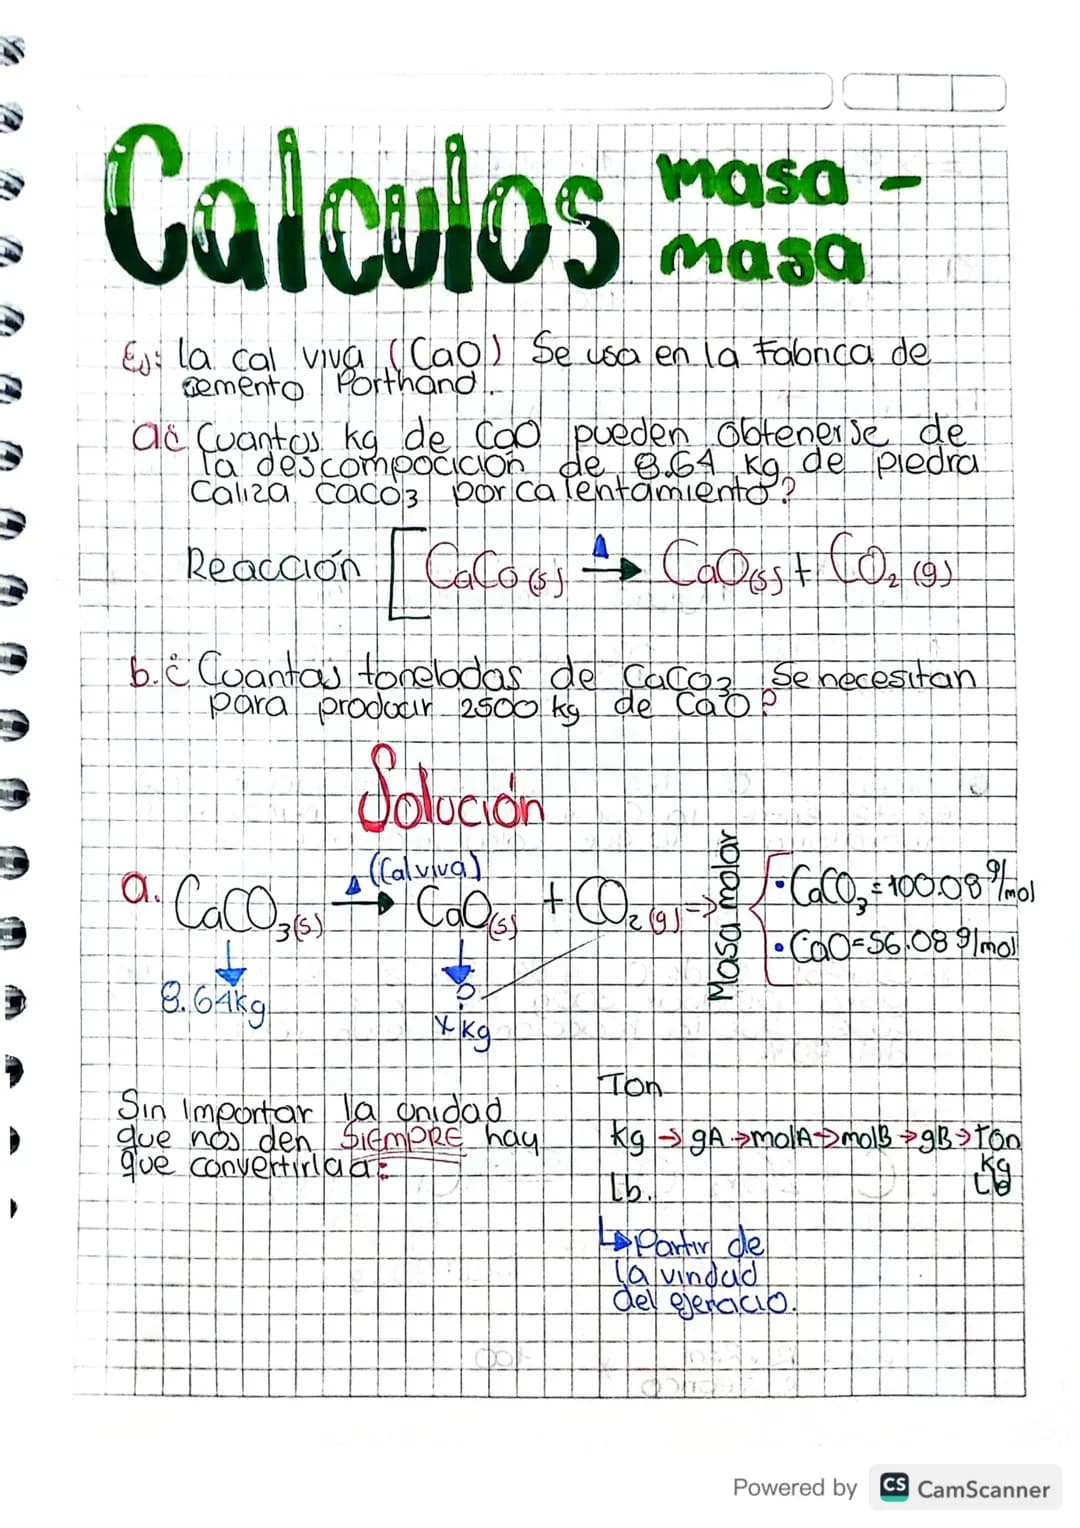 Calculos masa -
masa
Ej: la cal viva (CaO) Se usa en la Fabrica de
semento Porthand.
a¿ Cuantos kg de CaO pueden obtenerse de
la descompocición de 8.64 kg de piedra
Caliza CaCO3 por calentamiento?
Reacción [ CaCo (s) Δ→ CaO(s) + CO₂ (g)
b.¿ Cuantas toneladas de CaCO3 Se necesitan
para producir 2500 kg de CaO?
Solución
a. CaCO₃(s) Δ→ (Cal viva) CaO(s) + CO₂ (g) => Masa molar { • CaCO₃ = 100.08 g/mol
• CaO = 56.08 g/mol
↓ ↓
8.64kg ?
x kg
Sin Importar la unidad
que nos den SIEMPRE hay
que convertirla a:
Ton
Kg → gA → molA → molB → gB → Ton
Kg
Lb
Lb.
↳ Partir de
la vindad
del ejercicio.
Powered by CS CamScanner